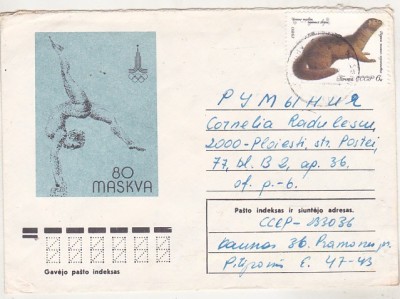 Почта СССР 6к
80
MASKVA
РУМЫНИЯ
Cornelia Radulescu,
2000-Ploiesti, str. Postei,
77, bl. B 2, ap. 36.
of. p.-6.
Pašto indeksas ir siuntėjo adresas.
СССР-233036
Kaunas 36. Pramonės pr.
E. 47-43
Gavėjo pašto indeksas